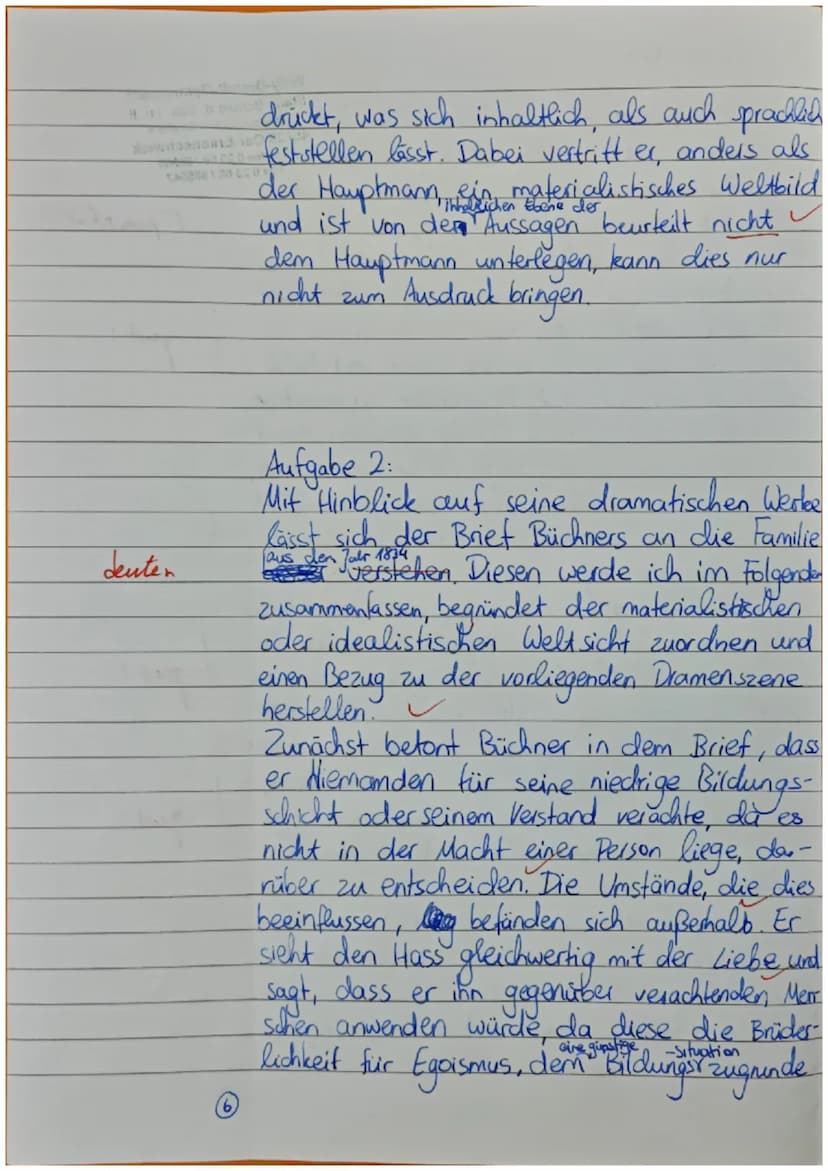 drückt, was sich inhaltlich, als auch sprachlich
feststellen lässt. Dabei vertritt er, anders als
der Hauptmann, ein materialistisches Weltbild
inhaltlichen Ebene der
und ist von der Aussagen beurteilt nicht
dem Hauptmann unterlegen, kann dies nur
nicht zum Ausdruck bringen.
Aufgabe 2:
Mit Hinblick auf seine dramatischen Werke
lässt sich der Brief Büchners an die Familie
aus den Jahr 1834
deuten
verstehen. Diesen werde ich im Folgenden
zusammenfassen, begründet der materialistischen
oder idealistischen Weltsicht zuordnen und
einen Bezug zu der vorliegenden Dramenszene
herstellen.
Zunächst betont Büchner in dem Brief, dass
er Niemanden für seine niedrige Bildungs-
schicht oder seinem Verstand verachte, da es
nicht in der Macht einer Person liege, da-
rüber zu entscheiden. Die Umstände, die dies
beeinflussen, befänden sich außerhalb. Er
sieht den Hass gleichwertig mit der Liebe und
sagt, dass er ihn gegenüber verachtenden Men-
schen anwenden würde, da diese die Brüder-
eine günstige -situation
lichkeit für Egoismus, dem Bildungs zugrunde
6